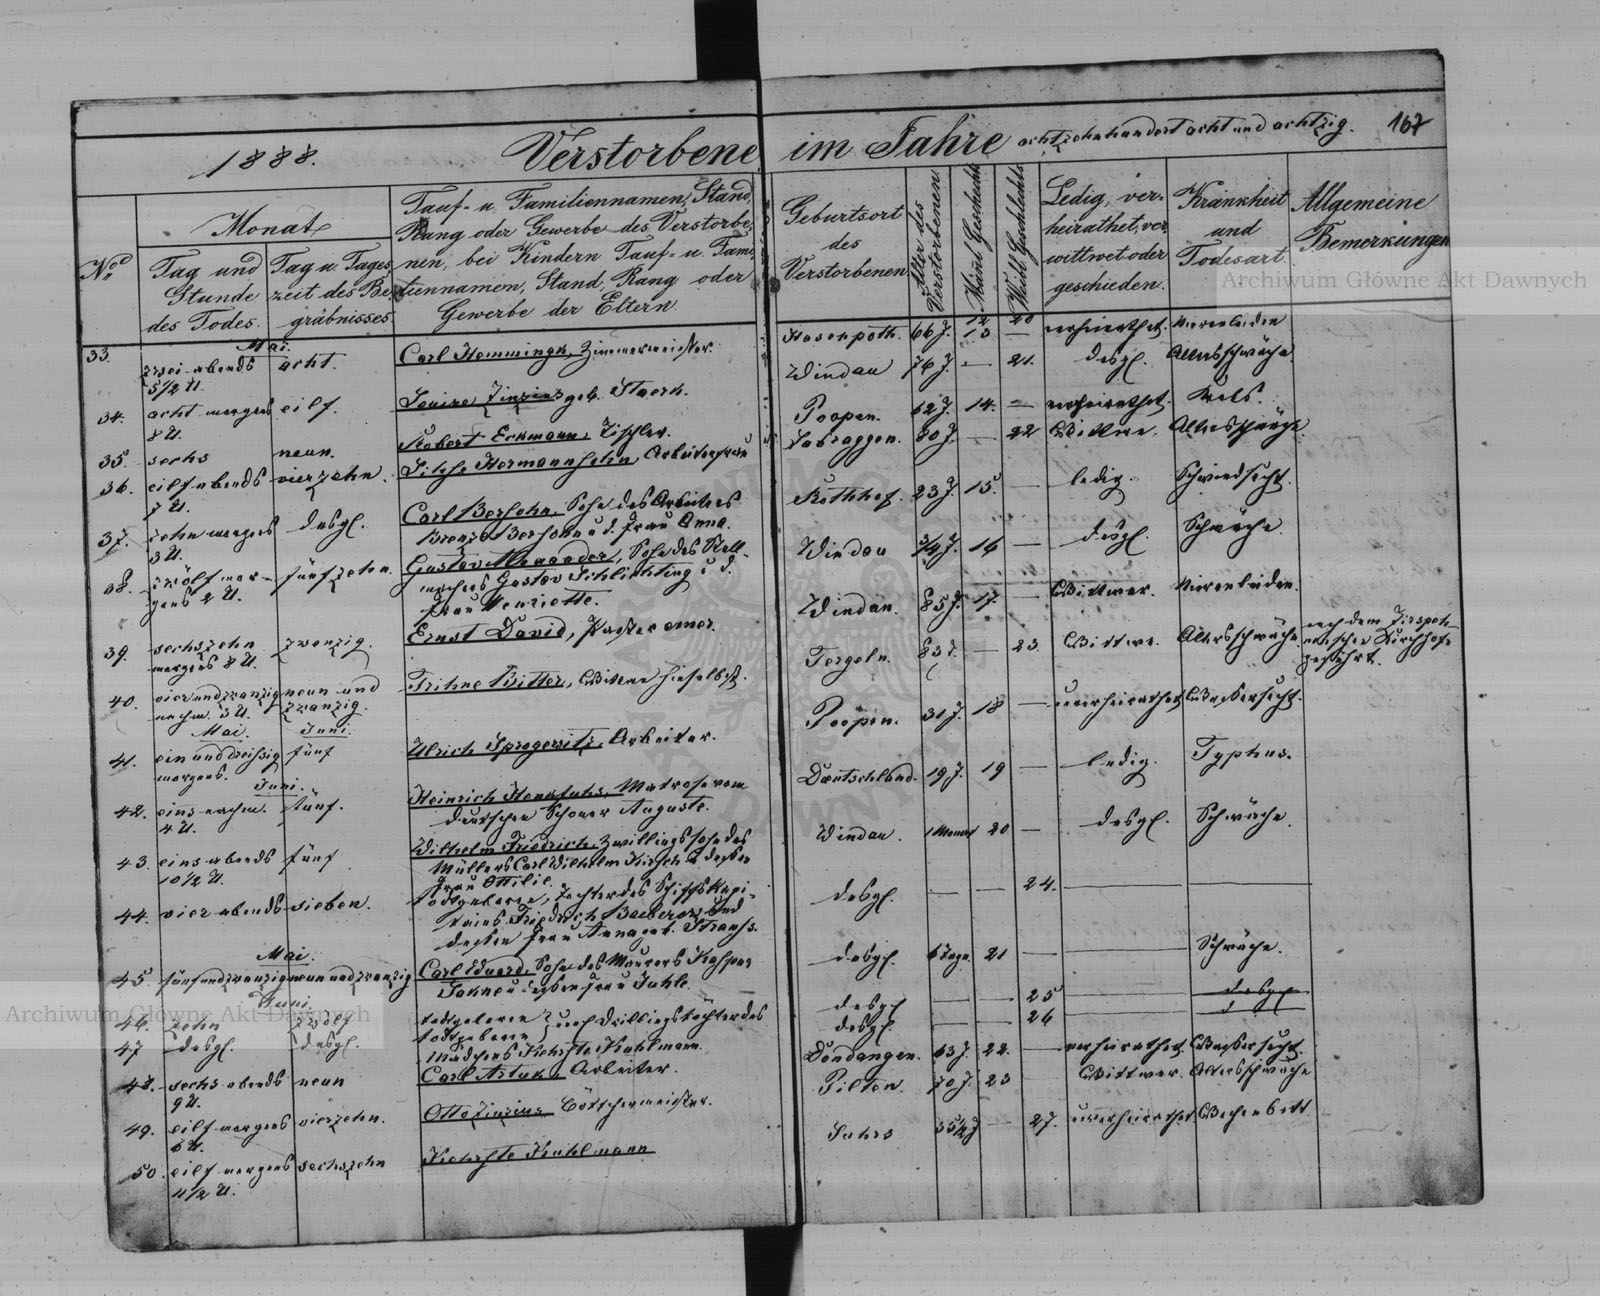 1888.
Verstorbene im Jahre achtzehnhundert acht und achtzig. 167
No
Monat
Tag und Stunde des Todes.
Tag u. Tageszeit des Begräbnisses
Tauf- u. Familiennamen, Stand,
Rang oder Gewerbe des Verstorbe-
nen, bei Kindern Tauf- u. Fami-
liennamen, Stand, Rang oder
Gewerbe der Eltern.
Geburtsort
des
Verstorbenen
Alter des Verstorbenen
Männl. Geschlechts
Weibl. Geschlechts
Ledig, ver-
heirathet, ver-
wittwet oder
geschieden.
Krankheit
und
Todesart.
Allgemeine
Bemerkungen
Archiwum Główne Akt Dawnych
Mai.
33. zwei abends 5 1/2 U. acht. Carl Hemmingk, Zimmermeister. Hasenpoth. 66 J. 13 — verheirathet. Nierenleiden
34. acht morgens 8 U. eilf. geb. Windau 76 J. — 21. desgl. Altersschwäche.
35. sechs neun. Robert Eckmann, Tischler. Poopen. 62 J. 14. — verheirathet.
36. eilf abends 7 U. vierzehn. Arbeitersfrau 80 J. — 22 Wittwe. Altersschwäche.
37. zehn morgens 3 U. desgl. Carl Bersohn, Sohn des Arbeiters
Bersohn u. d. Frau Anna. 23 J. 15. — ledig. Schwindsucht.
38. zwölf mor-
gens 2 U. fünfzehn. Gustav Alexander, Sohn des Stell-
machers Gustav Schlichting u. d.
Frau Henriette. Windau 3/4 J. 16 — desgl. Schwäche.
39. sechszehn
morgens 8 U. zwanzig. Ernst David, Pastor emer. Windau. 85 J. 17. — Wittwer. Nierenleiden. nach dem
Kirchhofe
geführt.
40. vierundzwanzig
nachm. 3 U. neun und
zwanzig. Trihne Bitter, Wittwe hieselbst. 83 J. — 23. Wittwe. Altersschwäche.
Mai. Juni.
41. ein und dreißig
morgens. fünf Ulrich Arbeiter. Poopen. 31 J. 18 — unverheirathet Wassersucht.
Juni.
42. eins nachm.
4 U. fünf. Heinrich Matrose vom
deutschen Schoner Auguste. Deutschland. 19 J. 19 — ledig. Typhus.
43. eins abends
10 1/2 U. fünf Wilhelm Friedrich, Zwillingssohn des
Müllers Carl Wilhelm Kirsch u. dessen
Frau Ottilie. Windau. 1 Monat 20 — desgl. Schwäche.
44. vier abends sieben. todtgeborene, Tochter des Schiffskapi-
tains Friedrich und
dessen Frau Anna geb. desgl. — — 24.
Mai.
45. fünfundzwanzig neun und zwanzig Carl Eduard, Sohn des Maurers Kaspar
u. dessen Frau Juhle. desgl. 6 Tage 21 — Schwäche.
Juni.
Archiwum Główne Akt Dawnych
46. zehn zwölf todtgeborene desgl — — 25 desgl
47 desgl. desgl. todtgeborene desgl. — — 26
zwei Drillingstöchter des
Mädchens Kuhlmann.
48. sechs abends
9 U. neun Carl Arbeiter. Dondangen. 63 J. 22. — verheirathet. Wassersucht.
49. eilf morgens
6 U. vierzehn. Otto Böttchermeister. Pilten. 70 J. 23 Wittwer. Altersschwäche
50. eilf morgens
4 1/2 U. sechszehn Kuhlmann — 27. unverheirathet. Wochenbett.